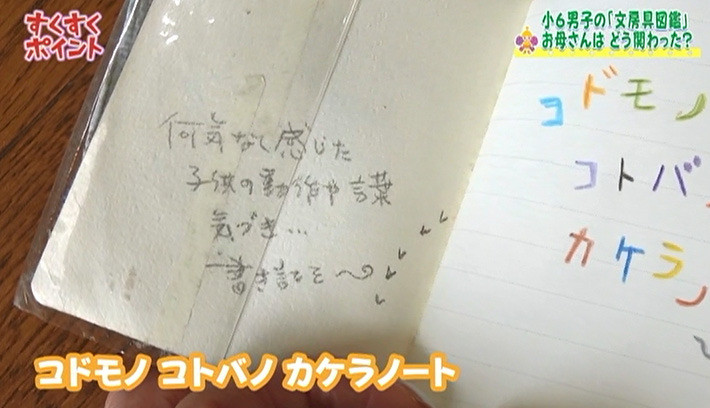 すくすく
ポイント
小6男子の「文房具図鑑」
お母さんは どう関わった?
何気なく感じた
子供の動作や言葉
気づき…
書き記そ〜
コドモノ
コトバノ
カケラノ
コドモノ コトバノ カケラノート